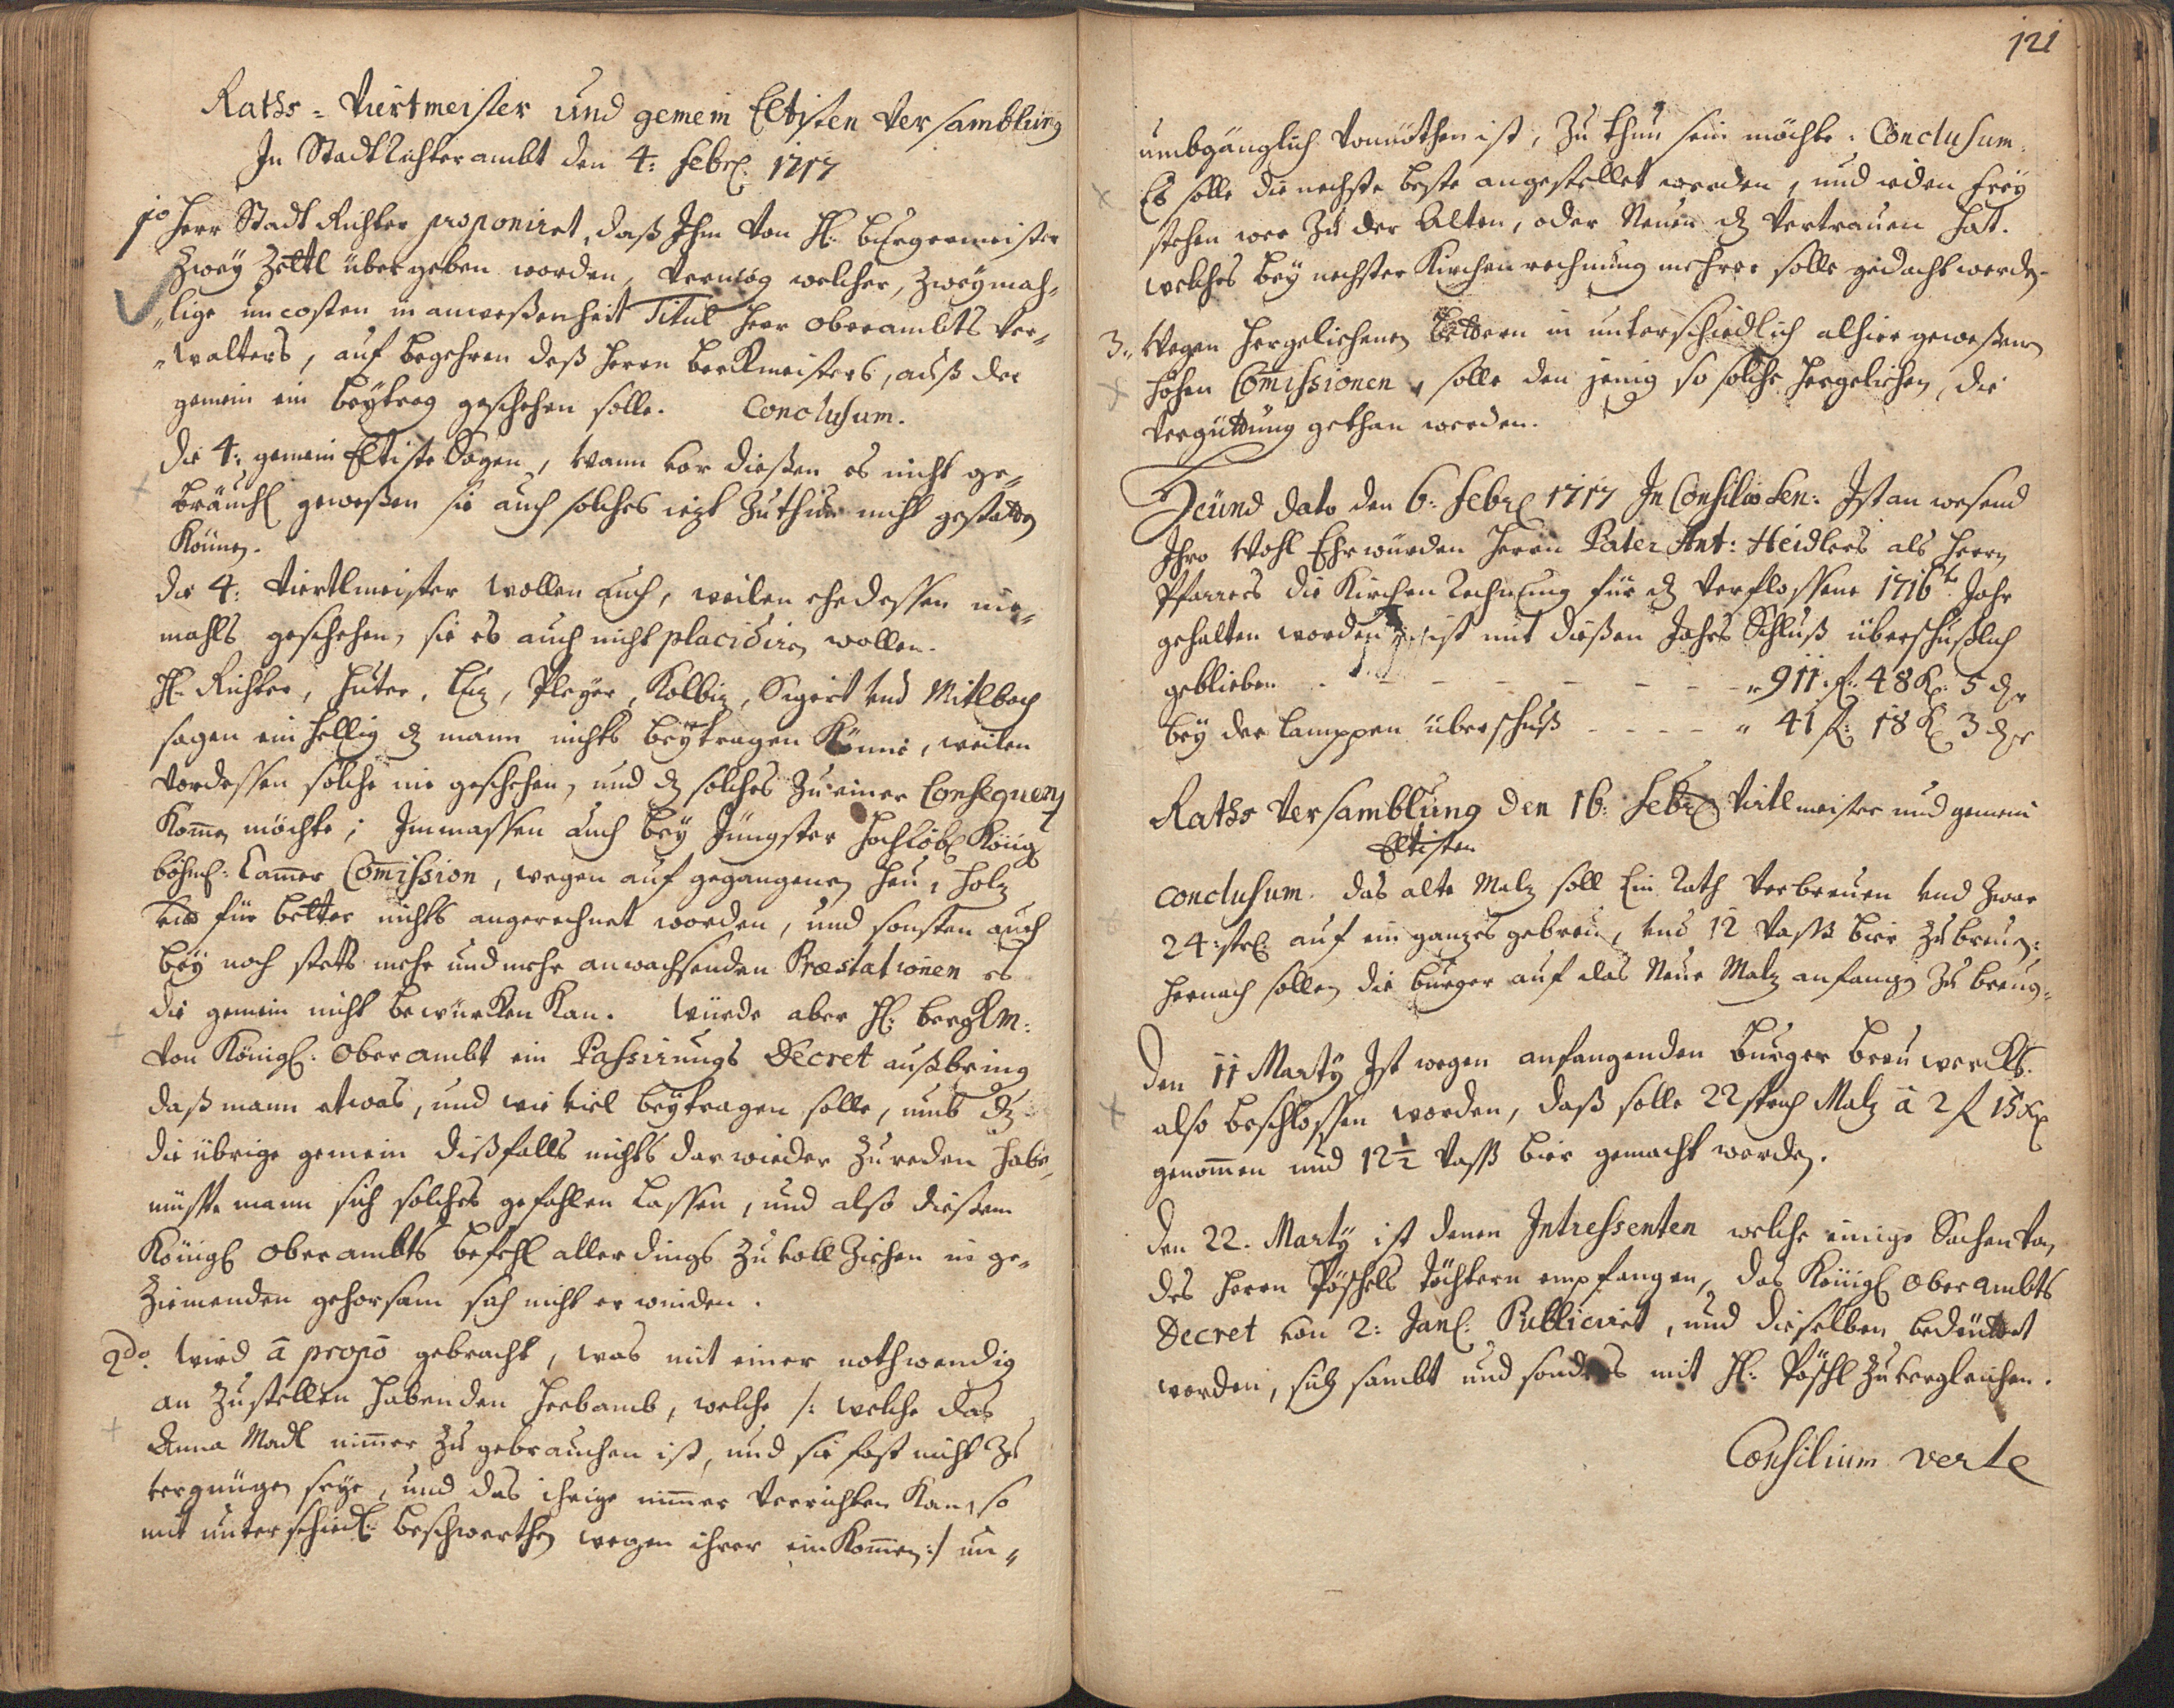 Raths-Viertmeister und gemein Eltisten Versamblung
In Stadt Richterambt den 4: Febr: 1717
1o Herr Stadt Richter proponiret, daß Ihm von H: Burgermeister
Zwey Zettl übergeben worden, vermög welcher, Zweymah-
"lige uncosten in anweßenheit Titul Herr Oberambts Ver-
"walters, auf begehren deß Herrn Berckmeisters, auß der
gemein ein beytrag geschehen solle. Conclusum.
Die 4: gemein Eltiste Sagen, wann vor dießen es nicht ge-
bräuchl geweßen sie auch solches iezt Zuthun nicht gestatten
Können.
die 4: Viertlmeister wollen auch, weilen ehedessen nie-
mahls geschehen, sie es auch nicht placidiren wollen.
H: Richter, Huter, Enz, Pleyer, Kolbiz, Sigert und Mitlbach
sagen ein hellig dz mann nichts beytragen Könne, weilen
vordessen solche nie geschehen, und dz solches Zu einer Consequenz
Komen möchte; Immassen auch bey Jüngster Hochlöbl König
böhml: Camer Comission, wegen auf gegangenen Heu, Holz
und für better nichts angerechnet worden, und sonsten auch
bey noch stetts mehr und mehr anwachsenden Præstationen es
die gemein nicht bewürcken Kan. Würde aber H: bergkm:
von Königl: Oberambt ein Passirungs Decret außbring
daß mann etwas, und wie viel beytragen solle, umb dz
die übrige gemein dißfalls nichts darwieder Zu reden habe,
müste mann sich solches gefahlen lassen, und also dießem
Königl Oberambts befehl allerdings Zu voll Ziehen in ge-
Ziemenden gehorsam sich nicht erwinden.
2do. Wird à propo gebracht, was mit einer nothwendig
an Zustellen habenden Hebamb, welche /: welche das
Anna Madl nimer Zu gebrauchen ist, und sie fast nicht Zu
vergnügen seye, und das ihrige nimer Verrichten Kan, so
mit unterschiedl: beschwerthen wegen ihrer ein Komen :/ un-
121
umbgänglich vonnöthen ist, Zu thun sein möchte. Conclusum.
Es solle die nechste beste angestellet werden, und ieden frey
stehen wer Zu der Alten, oder Neuen dz Vertrauen hat.
welches bey nechster Kirchenrechnung mehrer solle gedacht werden.
3.. Wegen hergeliehenen bettern in unterschiedlich alhier geweßenen
hohen Comissionen, solle den jenig so solche hergeliehen, die
Vergüttung gethan werden.
Heünd dato den 6: Febr 1717 In Consilio Sen: Ist an wesend
Ihro Wohl Ehrwürden Herrn Pater Ant: Heidlers als Herrn
Pfarrers die Kirchen Rechnung für dz Verflossene 1716te Jahr
gehalten worden, ist mit dießen Jahrs Schluß überschußlich
geblieben - - - - - - - " 911 f: 48 K: 5 d
bey der Lamppen überschuß - - - - " 41 f: 18 K 3 d
Raths Versamblung den 16: Febr Virtlmeister und gemein
Eltisten
Conclusum. das alte Malz soll Ein Rath Verbreuen und Zwar
24: str: auf ein ganzes gebreu, und 12 Vaß bier Zu breuen:
hernach sollen die burger auf das Neue Malz anfangen Zu breuen.
Den 11 Marty Ist wegen anfangenden Burger breu wercks.
also beschlossen worden, daß solle 22 strich Malz à 2 f 15 x
genommen und 12½ Vaß bier gemacht werden.
Den 22. Marty ist denen Intressenten welche einige Sachen von
des Herrn Pöschels Töchtern empfangen, das Königl Oberambts
Decret von 2: Janl: Publicirt, und dieselben bedeuttet
worden, sich sambt und sonders mit H: Pöschl Zu vergleichen.
Consilium verte